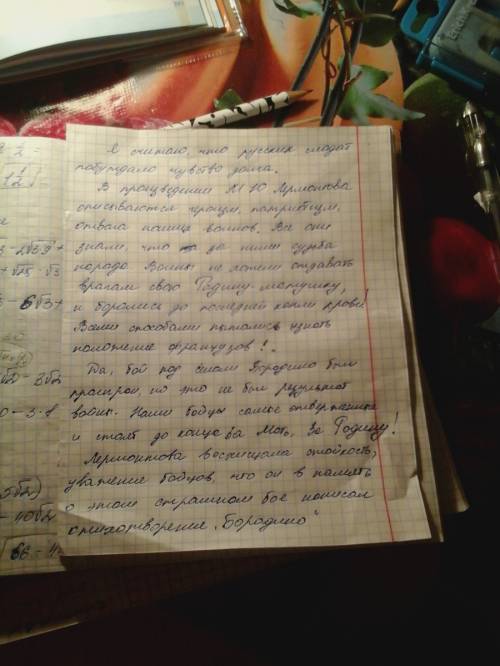 Я считаю, что русских солдат
побуждало чувство долга.
В произведении М Ю Лермонтова
описываются героизм, патриотизм,
отвага наших воинов. Все они
знали, что за ними судьба
народа. Воины не хотели отдавать
врагам свою Родину-матушку,
и боролись до последней капли крови!
Всеми способами пытались узнать
положение французов!.
Да, бой под селом Бородино был
проигран, но это не был результат
войны. Наши бойцы самые отверженные
и стоят до конца За Мать, За Родину!
Лермонтова восхищала стойкость,
уважение бойцов, что он в память
о этом страшном бое написал
стихотворение „Бородино"
2
12
3 - 2√3·3 +
+ √25 · √3
3 - 6√3 +
√2 - 3√2
0 - 3 · 8
5√2)
- 40√2
66 - 4